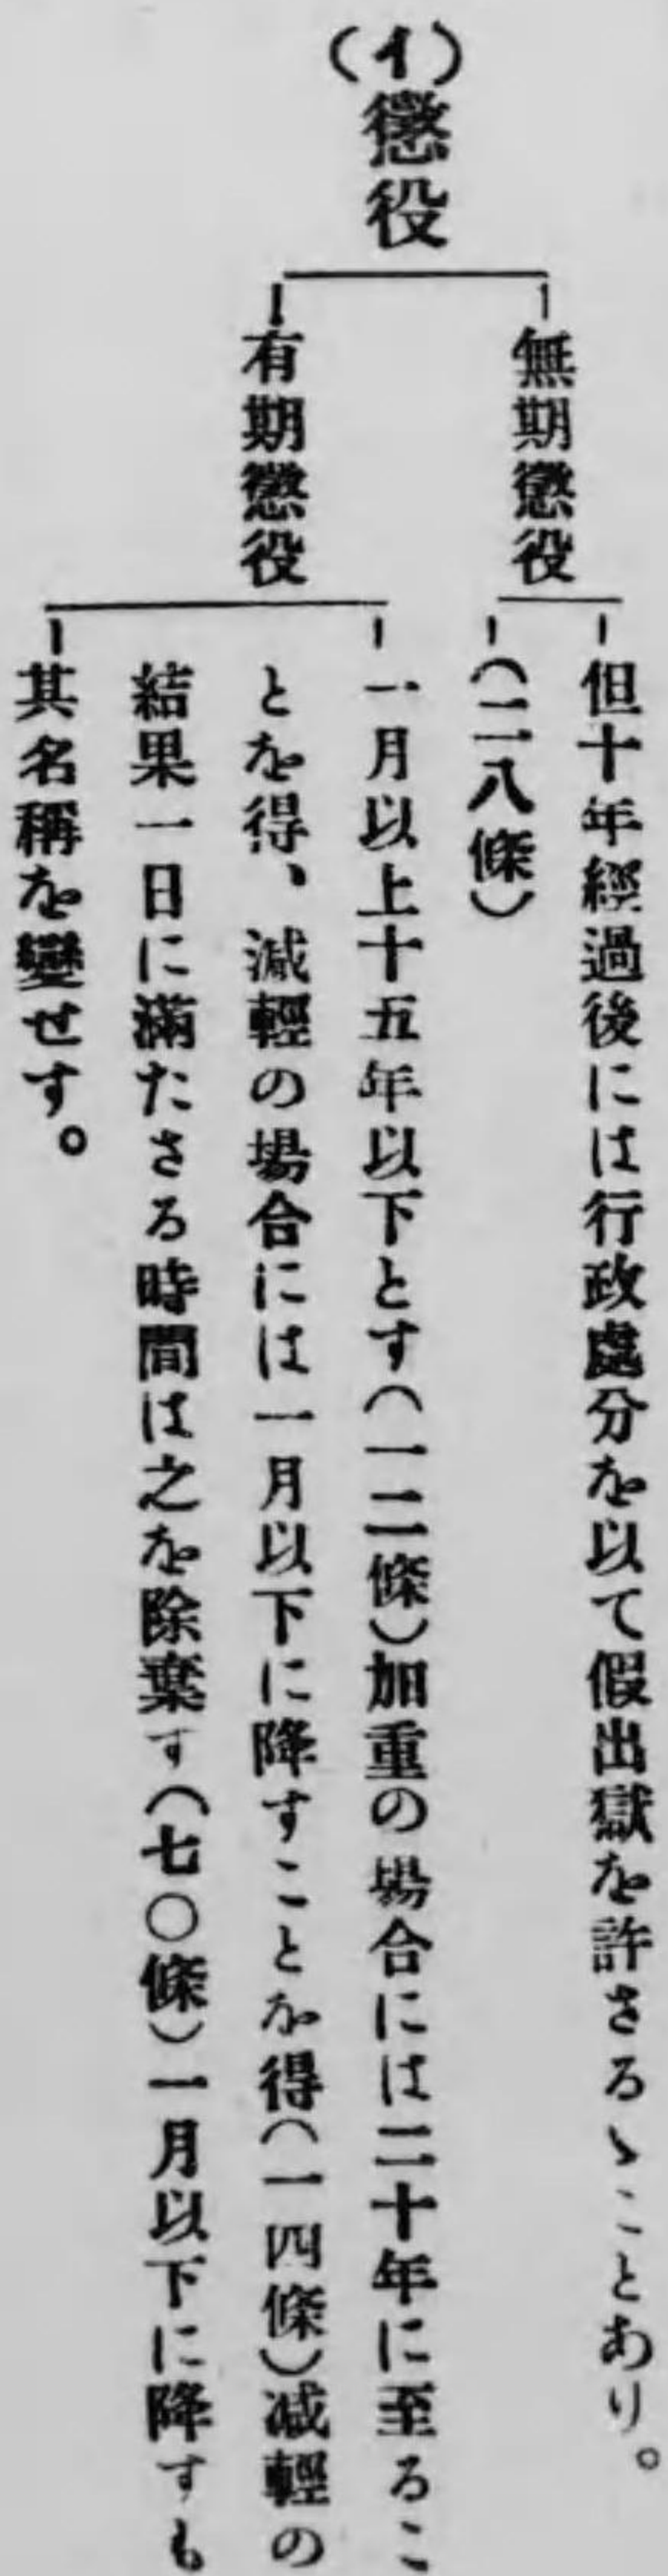 (イ)懲役
無期懲役
但十年經過後には行政處分を以て假出獄を許さるゝことあり。
(二八條)
有期懲役
一月以上十五年以下とす(一二條)加重の場合には二十年に至るこ
とを得、減輕の場合には一月以下に降すことを得(一四條)減輕の
結果一日に滿たさる時間は之を除棄す(七〇條)一月以下に降すも
其名稱を變せす。